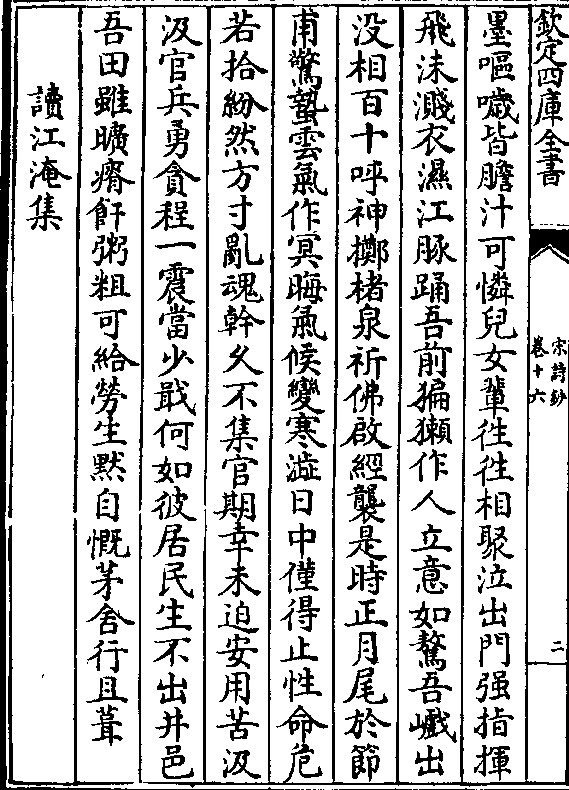 欽定四庫全書
宋詩鈔
卷十六
二
墨嘔噦皆膽汁可憐兒女輩徃徃相聚泣出門强指揮
飛沫濺衣濕江豚踊吾前猵獺作人立意如騖吾巇出
没相百十呼神擲楮泉祈佛啟經襲是時正月尾於節
甫驚蟄雲氣作冥晦氣候變寒澁日中僅得止性命危
若拾紛然方寸亂魂幹乆不集官期幸未迫安用苦汲
汲官兵勇貪程一震當少戢何如彼居民生不出井邑
吾田雖曠瘠飦粥粗可給勞生黙自慨茅舍行且葺
讀江淹集